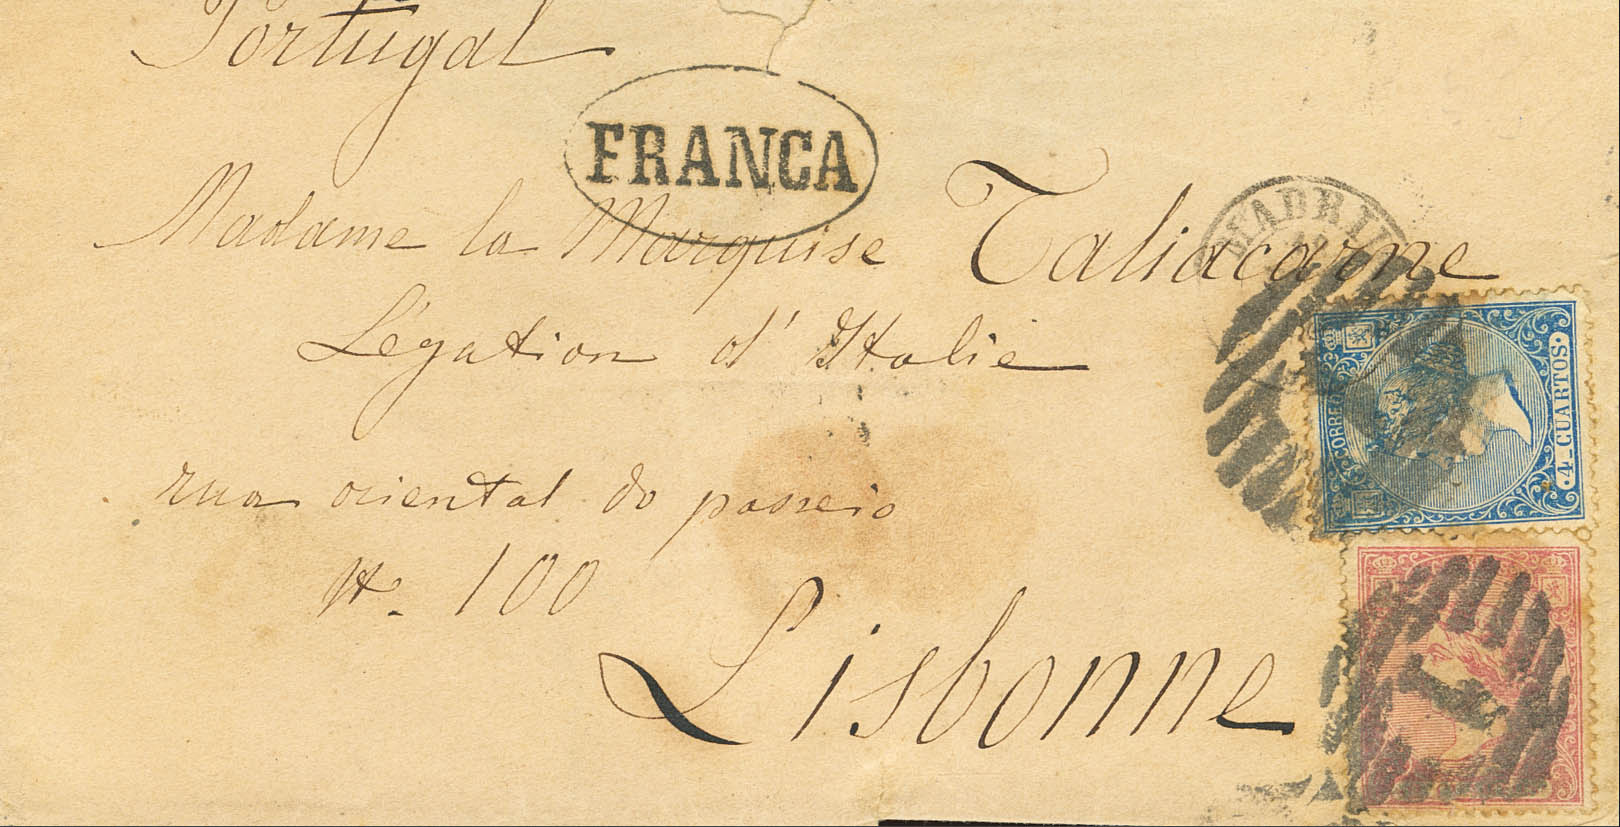 Portugal
FRANCA
Madame la Marquise Taliacarne
MADRID
Légation d'Italie
CORREOS
4 CUARTOS
rua oriental do passeio
N. 100
Lisbonne
1